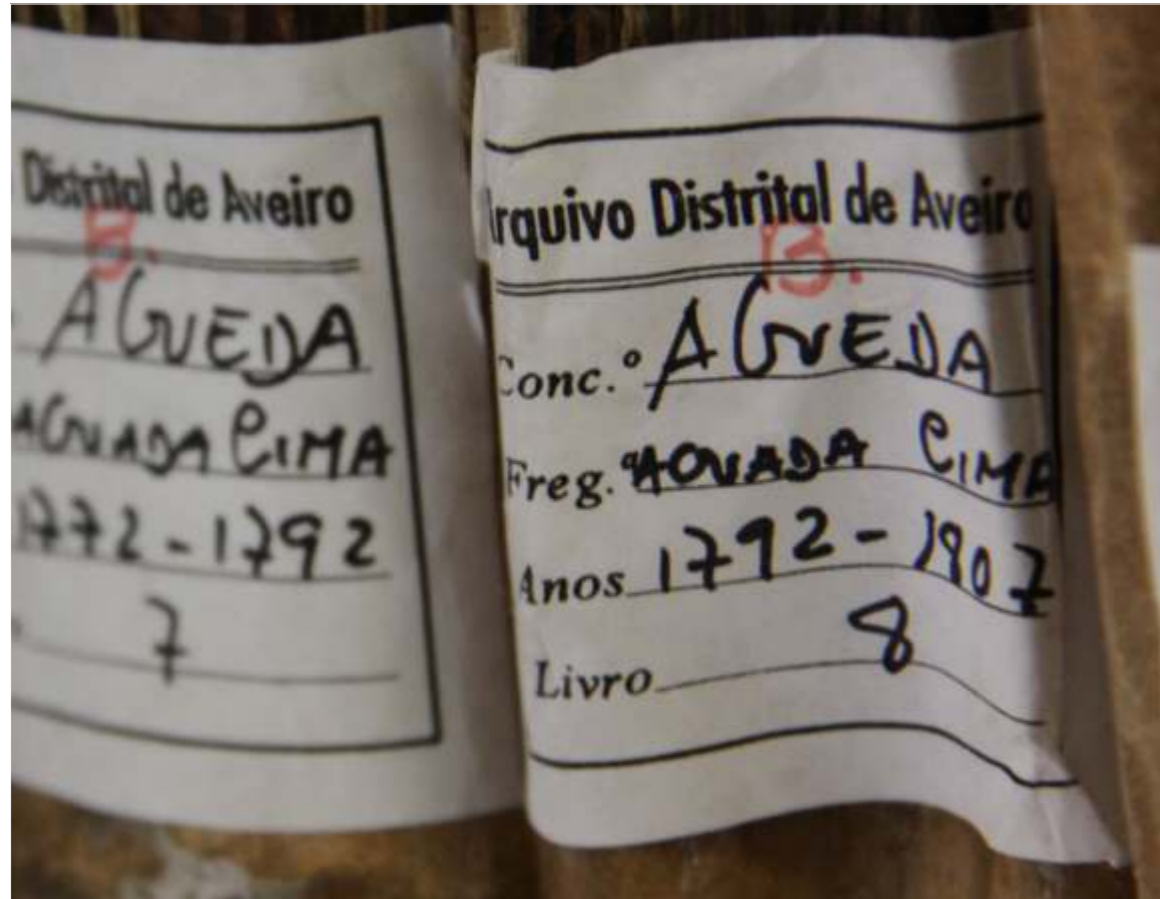 Distrital de Aveiro
B.
AGUEDA
AGUADA CIMA
1772-1792
7
rquivo Distrital de Aveiro
B.
Conc.º AGUEDA
Freg.ª AGUADA CIMA
Anos 1792-1807
Livro 8